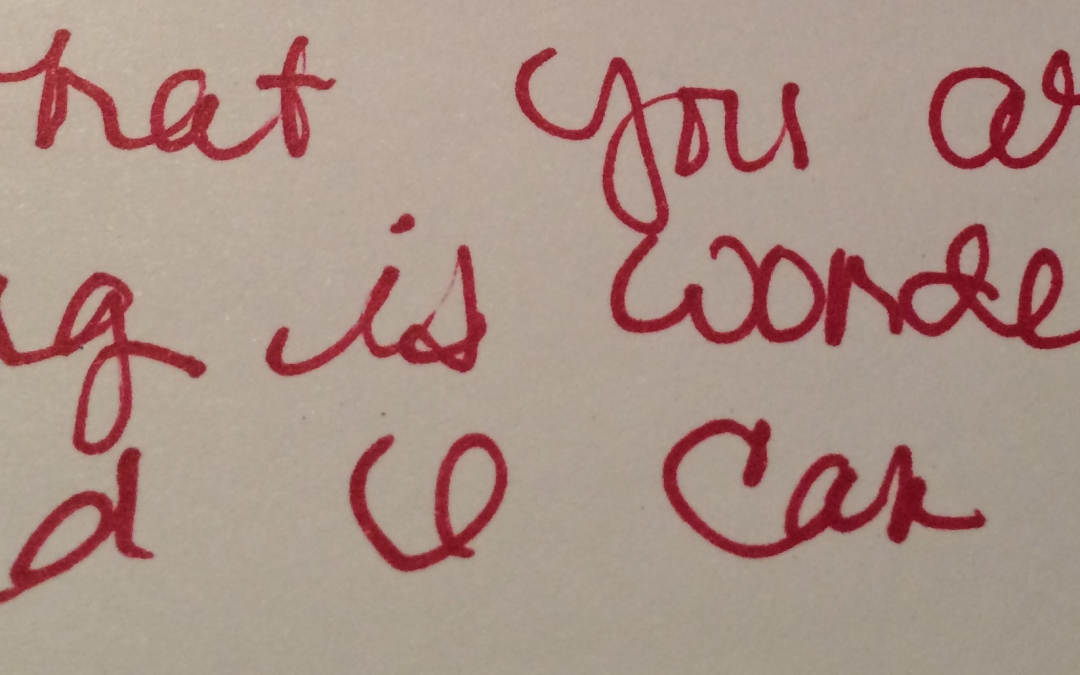 hat you ar
ng is wonde
d I can